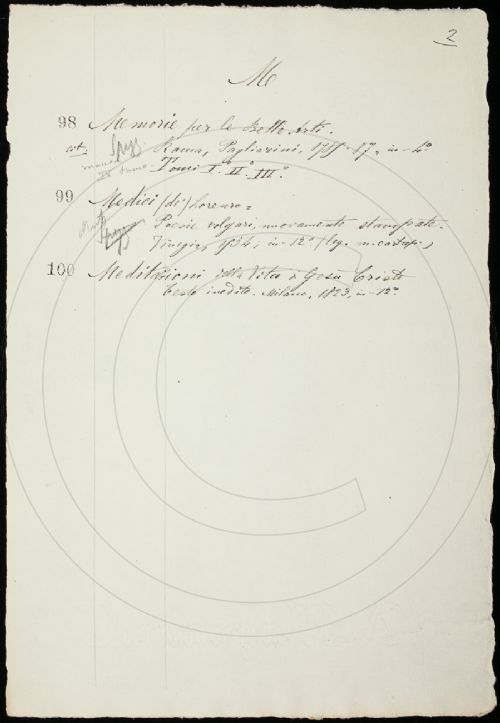 2
M
98 Memorie per le Belle Arti.
cart. Roma, Pagliarini, 1785-87, in-4º
Tomi I. II. III.
99 Medici (de') Lorenzo =
Poesie volgari, nuovamente stampate.
1554; in-12º (leg. m.
100 Meditazioni della Vita di Gesù Cristo
testo inedito. Milano, 1823, in-12º.